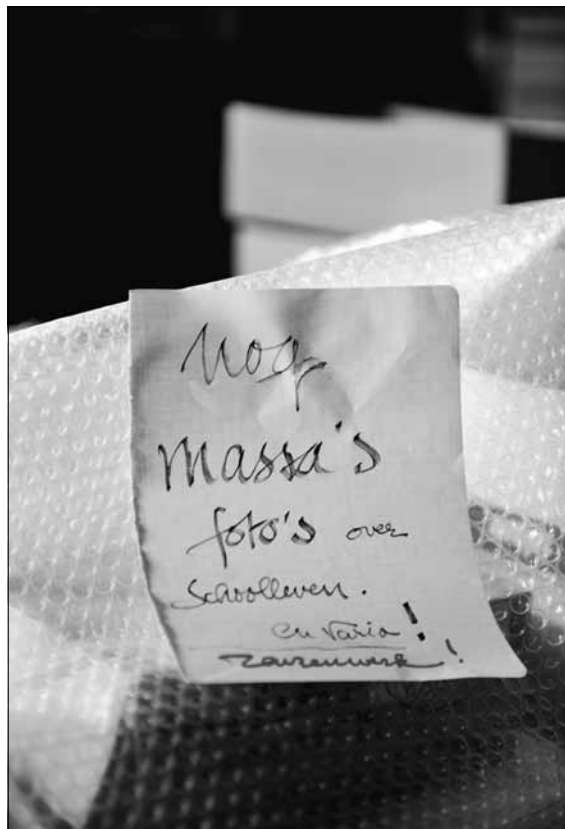 Nog
massa's
foto's over
schoolleven.
en varia!
reuzenwerk!